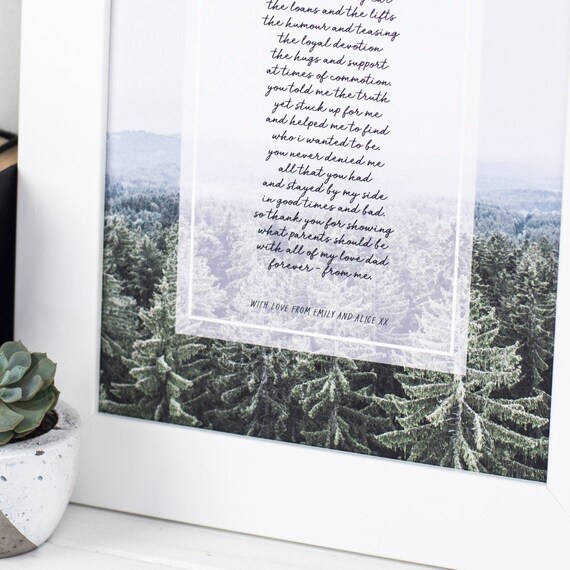 the loans and the lifts
the humour and teasing
the loyal devotion
the hugs and support
at times of commotion.
you told me the truth
yet stuck up for me
and helped me to find
who i wanted to be.
you never denied me
all that you had
and stayed by my side
in good times and bad.
so thank you for showing
what parents should be
with all of my love dad
forever - from me.
WITH LOVE FROM EMILY AND ALICE XX